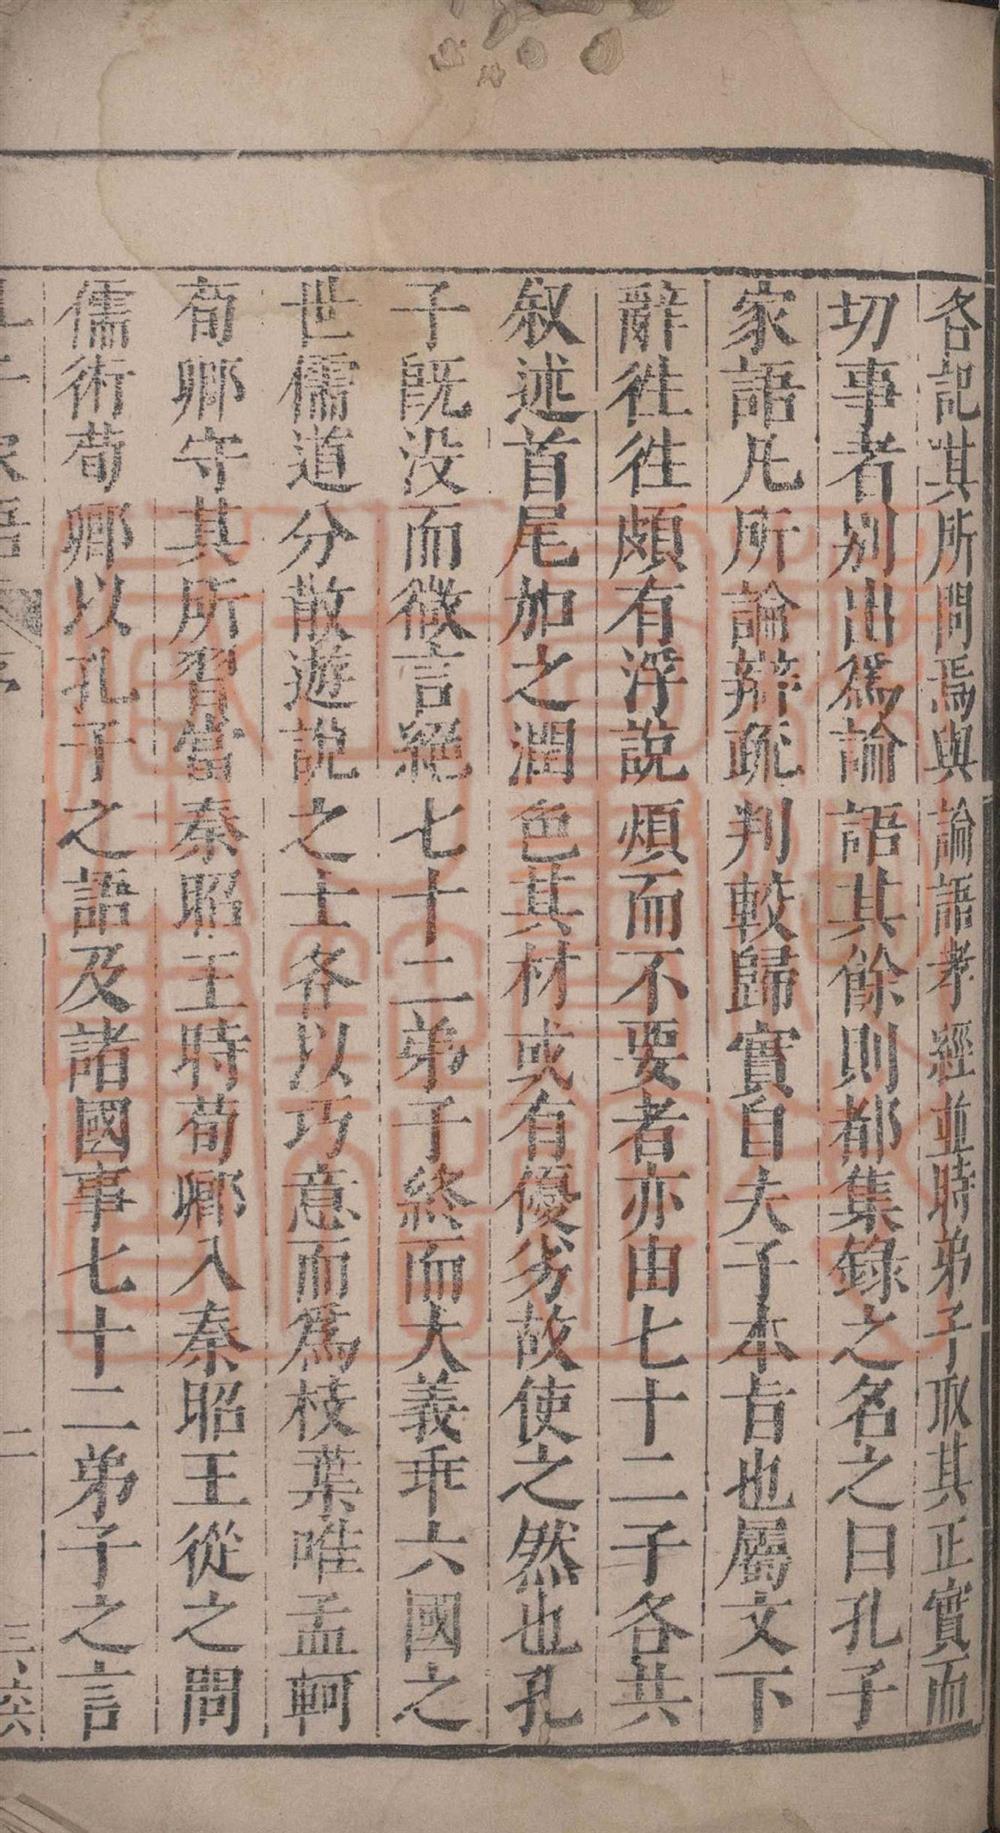 各記其所問焉與論語孝經並時弟子取其正實而
切事者別出爲論語其餘則都集錄之名之曰孔子
家語凡所論辯疏判較歸實自夫子本旨也屬文下
辭徃徃頗有浮說煩而不要者亦由七十二子各共
叙述首尾加之潤色其材或有優劣故使之然也孔
子旣没而微言絕七十二弟子終而大義乖六國之
世儒道分散遊說之士各以巧意而爲枝葉唯孟軻
荀卿守其所習當秦昭王時荀卿入秦昭王從之問
儒術荀卿以孔子之語及諸國事七十二弟子之言
孔子家語 序 二